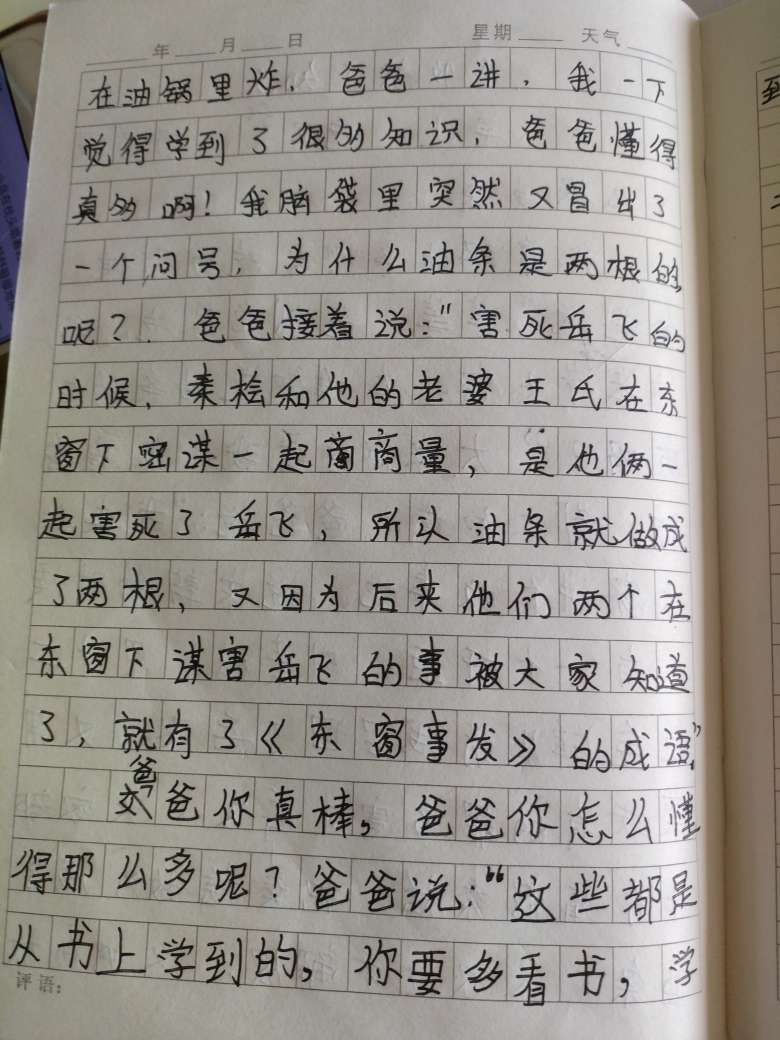 年 月 日 星期 天气
在油锅里炸，爸爸一讲，我一下
觉得学到了很多知识，爸爸懂得
真多啊！我脑袋里突然又冒出了
一个问号，为什么油条是两根的
呢？爸爸接着说：“害死岳飞的
时候，秦桧和他的老婆王氏在东
窗下密谋一起商商量，是他俩一
起害死了岳飞，所以油条就做成
了两根，又因为后来他们两个在
东窗下谋害岳飞的事被大家知道
了，就有了《东窗事发》的成语。”
爸爸你真棒，爸爸你怎么懂
得那么多呢？爸爸说：“这些都是
从书上学到的，你要多看书，学
评语：